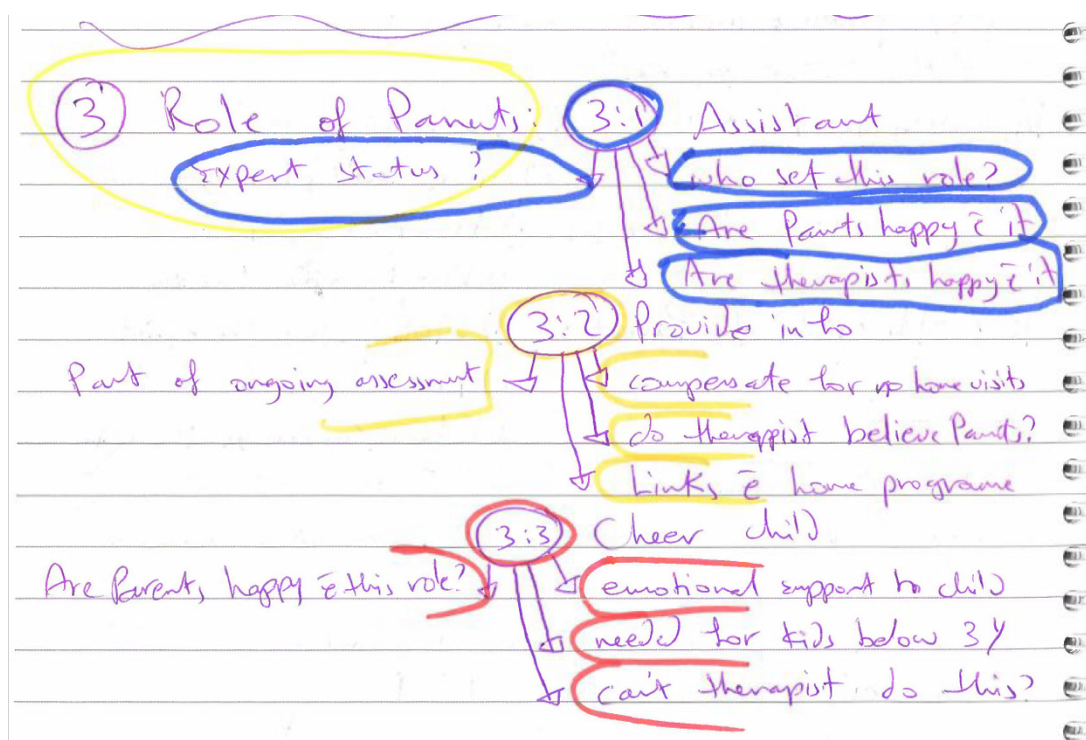 3 Role of Parents: 3:1 Assistant
Expert status? who set this role?
Are Parents happy c̄ it
Are therapists happy c̄ it
3:2 Provide info
Part of ongoing assessment compensate for no home visits
do therappist believe Parents?
Links c̄ home programe
3:3 Cheer child
Are Parents happy c̄ this role? emotional support to child
need for kids below 3Y
can't therapist do this?